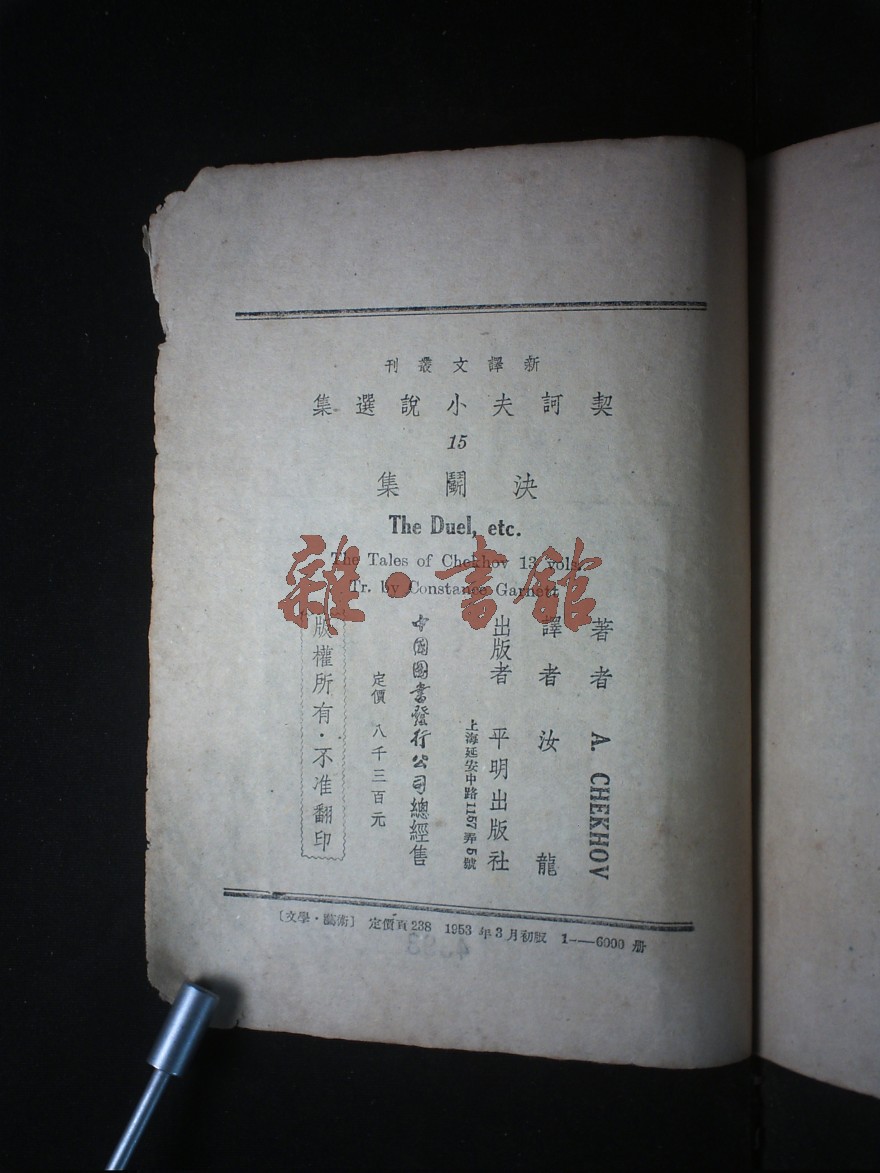 新譯文叢刊
契訶夫小說選集
15
決鬭集
The Duel, etc.
The Tales of Chekhov 13 vols.
Tr. by Constance Garnett
雜·書館
著者 A. CHEKHOV
譯者 汝龍
出版者 平明出版社
上海延安中路1157弄5號
中國圖書發行公司總經售
定價 八千三百元
版權所有·不准翻印
〔文學·藝術〕 定價頁238 1953年3月初版 1——6000册